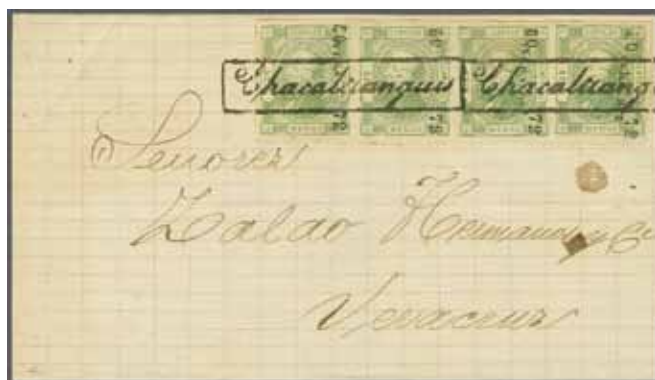 Chacaltianguis Chacaltiang
Señores
Zaldo Hermanos y C
Veracruz